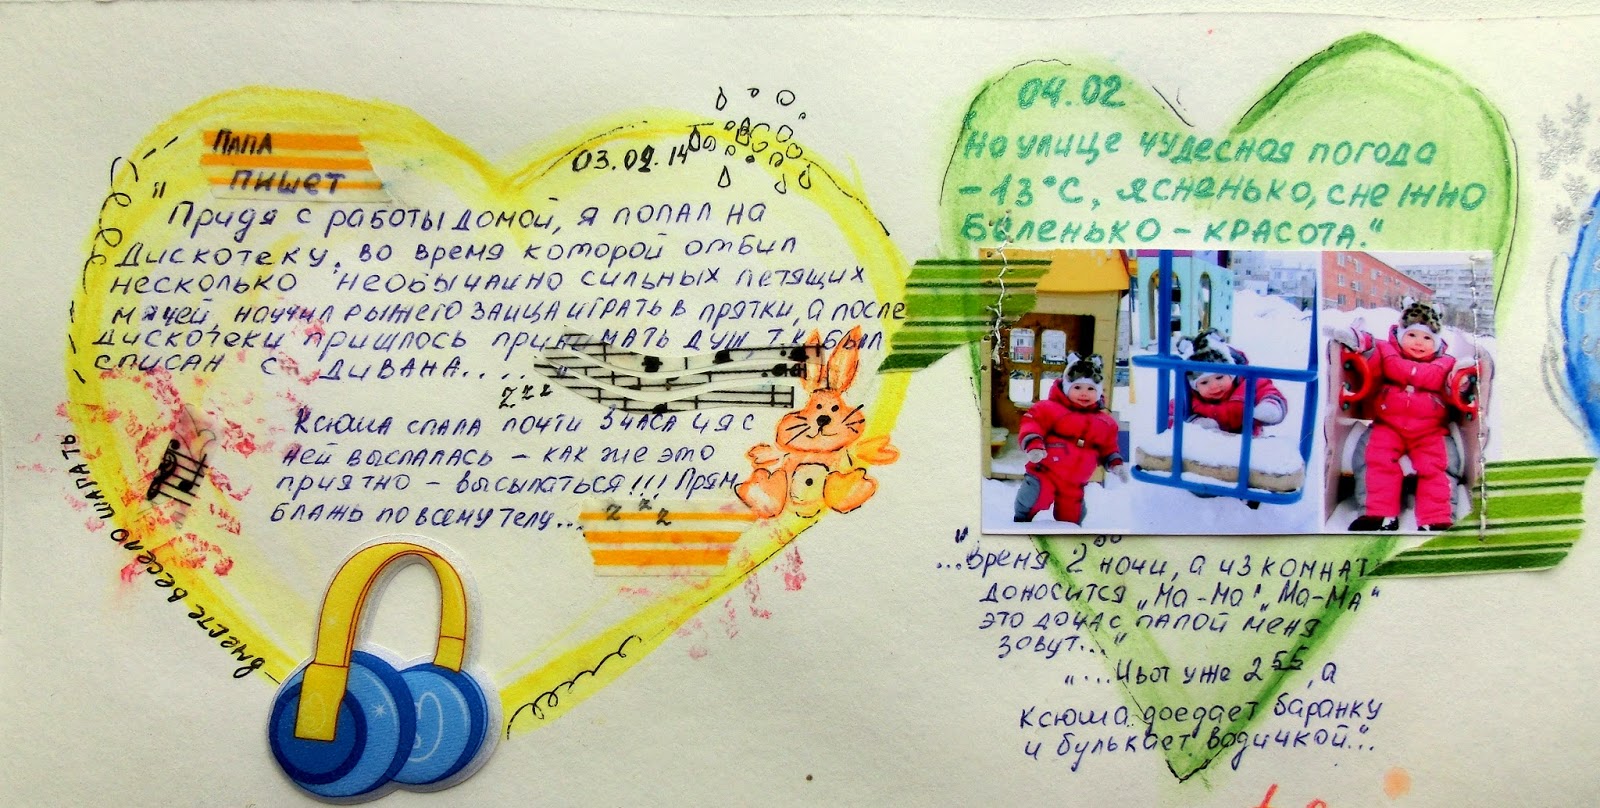 Папа
пишет
03.02.14
" Придя с работы домой, я попал на
дискотеку, во время которой отбил
несколько необычайно сильных летящих
мячей, научил рыжего зайца играть в прятки, а после
дискотеки пришлось принимать душ, т.к. был
списан с дивана....."
zzz
Ксюша спала почти 3 часа и я с
ней выспалась – как же это
приятно – высыпаться!!! Прям
блажь по всему телу...
zzz
вместе весело шагать
04.02
На улице чудесная погода
-13°С, ясненько, снежно
беленько – красота."
"...Время 2 00 ночи, а из комнат
доносится „Ма-ма" „Ма-ма"
это доча с папой меня
зовут..."
"... уже 2 55, а
Ксюша доедает баранку
и булькает водичкой..."